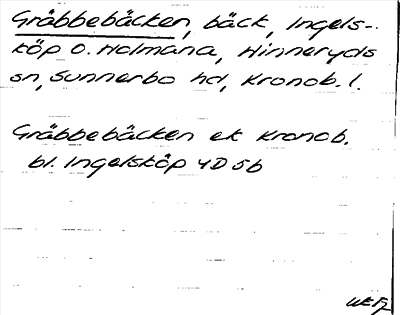 Gräbbebäcken, bäck, Ingels-
köp o. Holmana, Hinneryds
sn, Sunnerbo hd, Kronob. l.
Gräbbebäcken ek Kronob.
bl. Ingelsköp 4D 5b